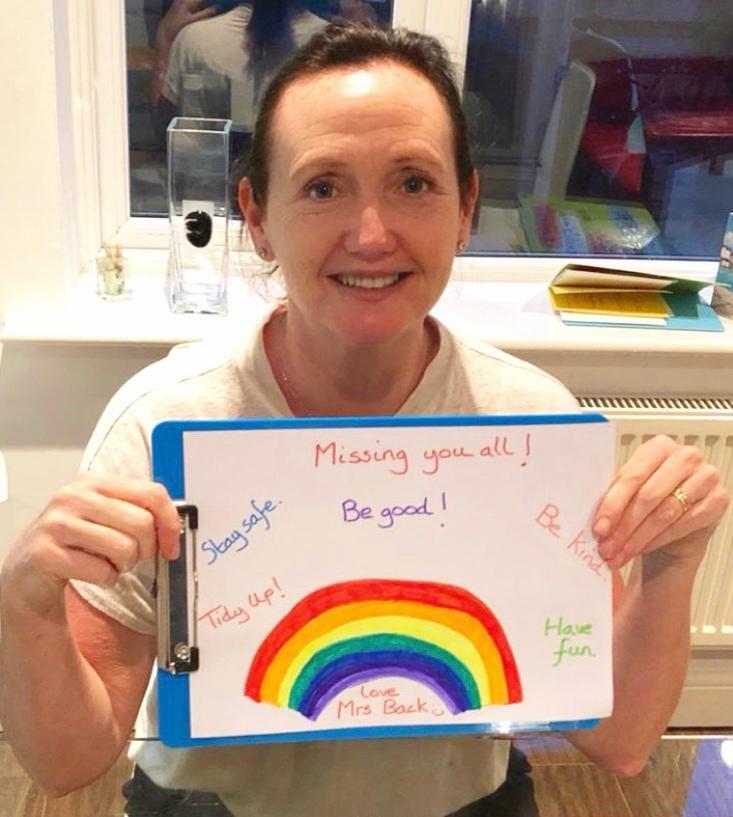 Missing you all!
Be good!
Stay safe.
Be kind.
Tidy Up!
Have
fun
Love
Mrs Back